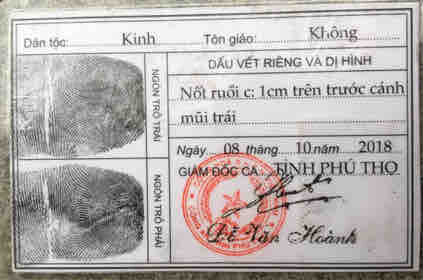 Dân tộc: Kinh Tôn giáo: Không
NGÓN TRỎ TRÁI
DẤU VẾT RIÊNG VÀ DỊ HÌNH
Nốt ruồi c: 1cm trên trước cánh
mũi trái
NGÓN TRỎ PHẢI
Ngày 08 tháng 10 năm 2018
GIÁM ĐỐC CA: TỈNH PHÚ THỌ
Văn Hoành